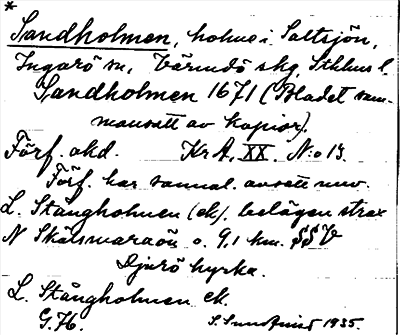 *
Sandholmen, holme i Saltsjön,
Ingarö sn, Värmdö skg, Sthlms l.
Sandholmen 1671 (Bladet sam-
mansatt av kopior).
Förf. okd. KrA, XX. N:o 13.
Förf. har sannol. avsett nuv.
L. Stångholmen (ek), belägen strax
N Skälsmaraön o. 9,1 km. SSV
Djurö kyrka.
L. Stångholmen ek.
G.H. 1935.